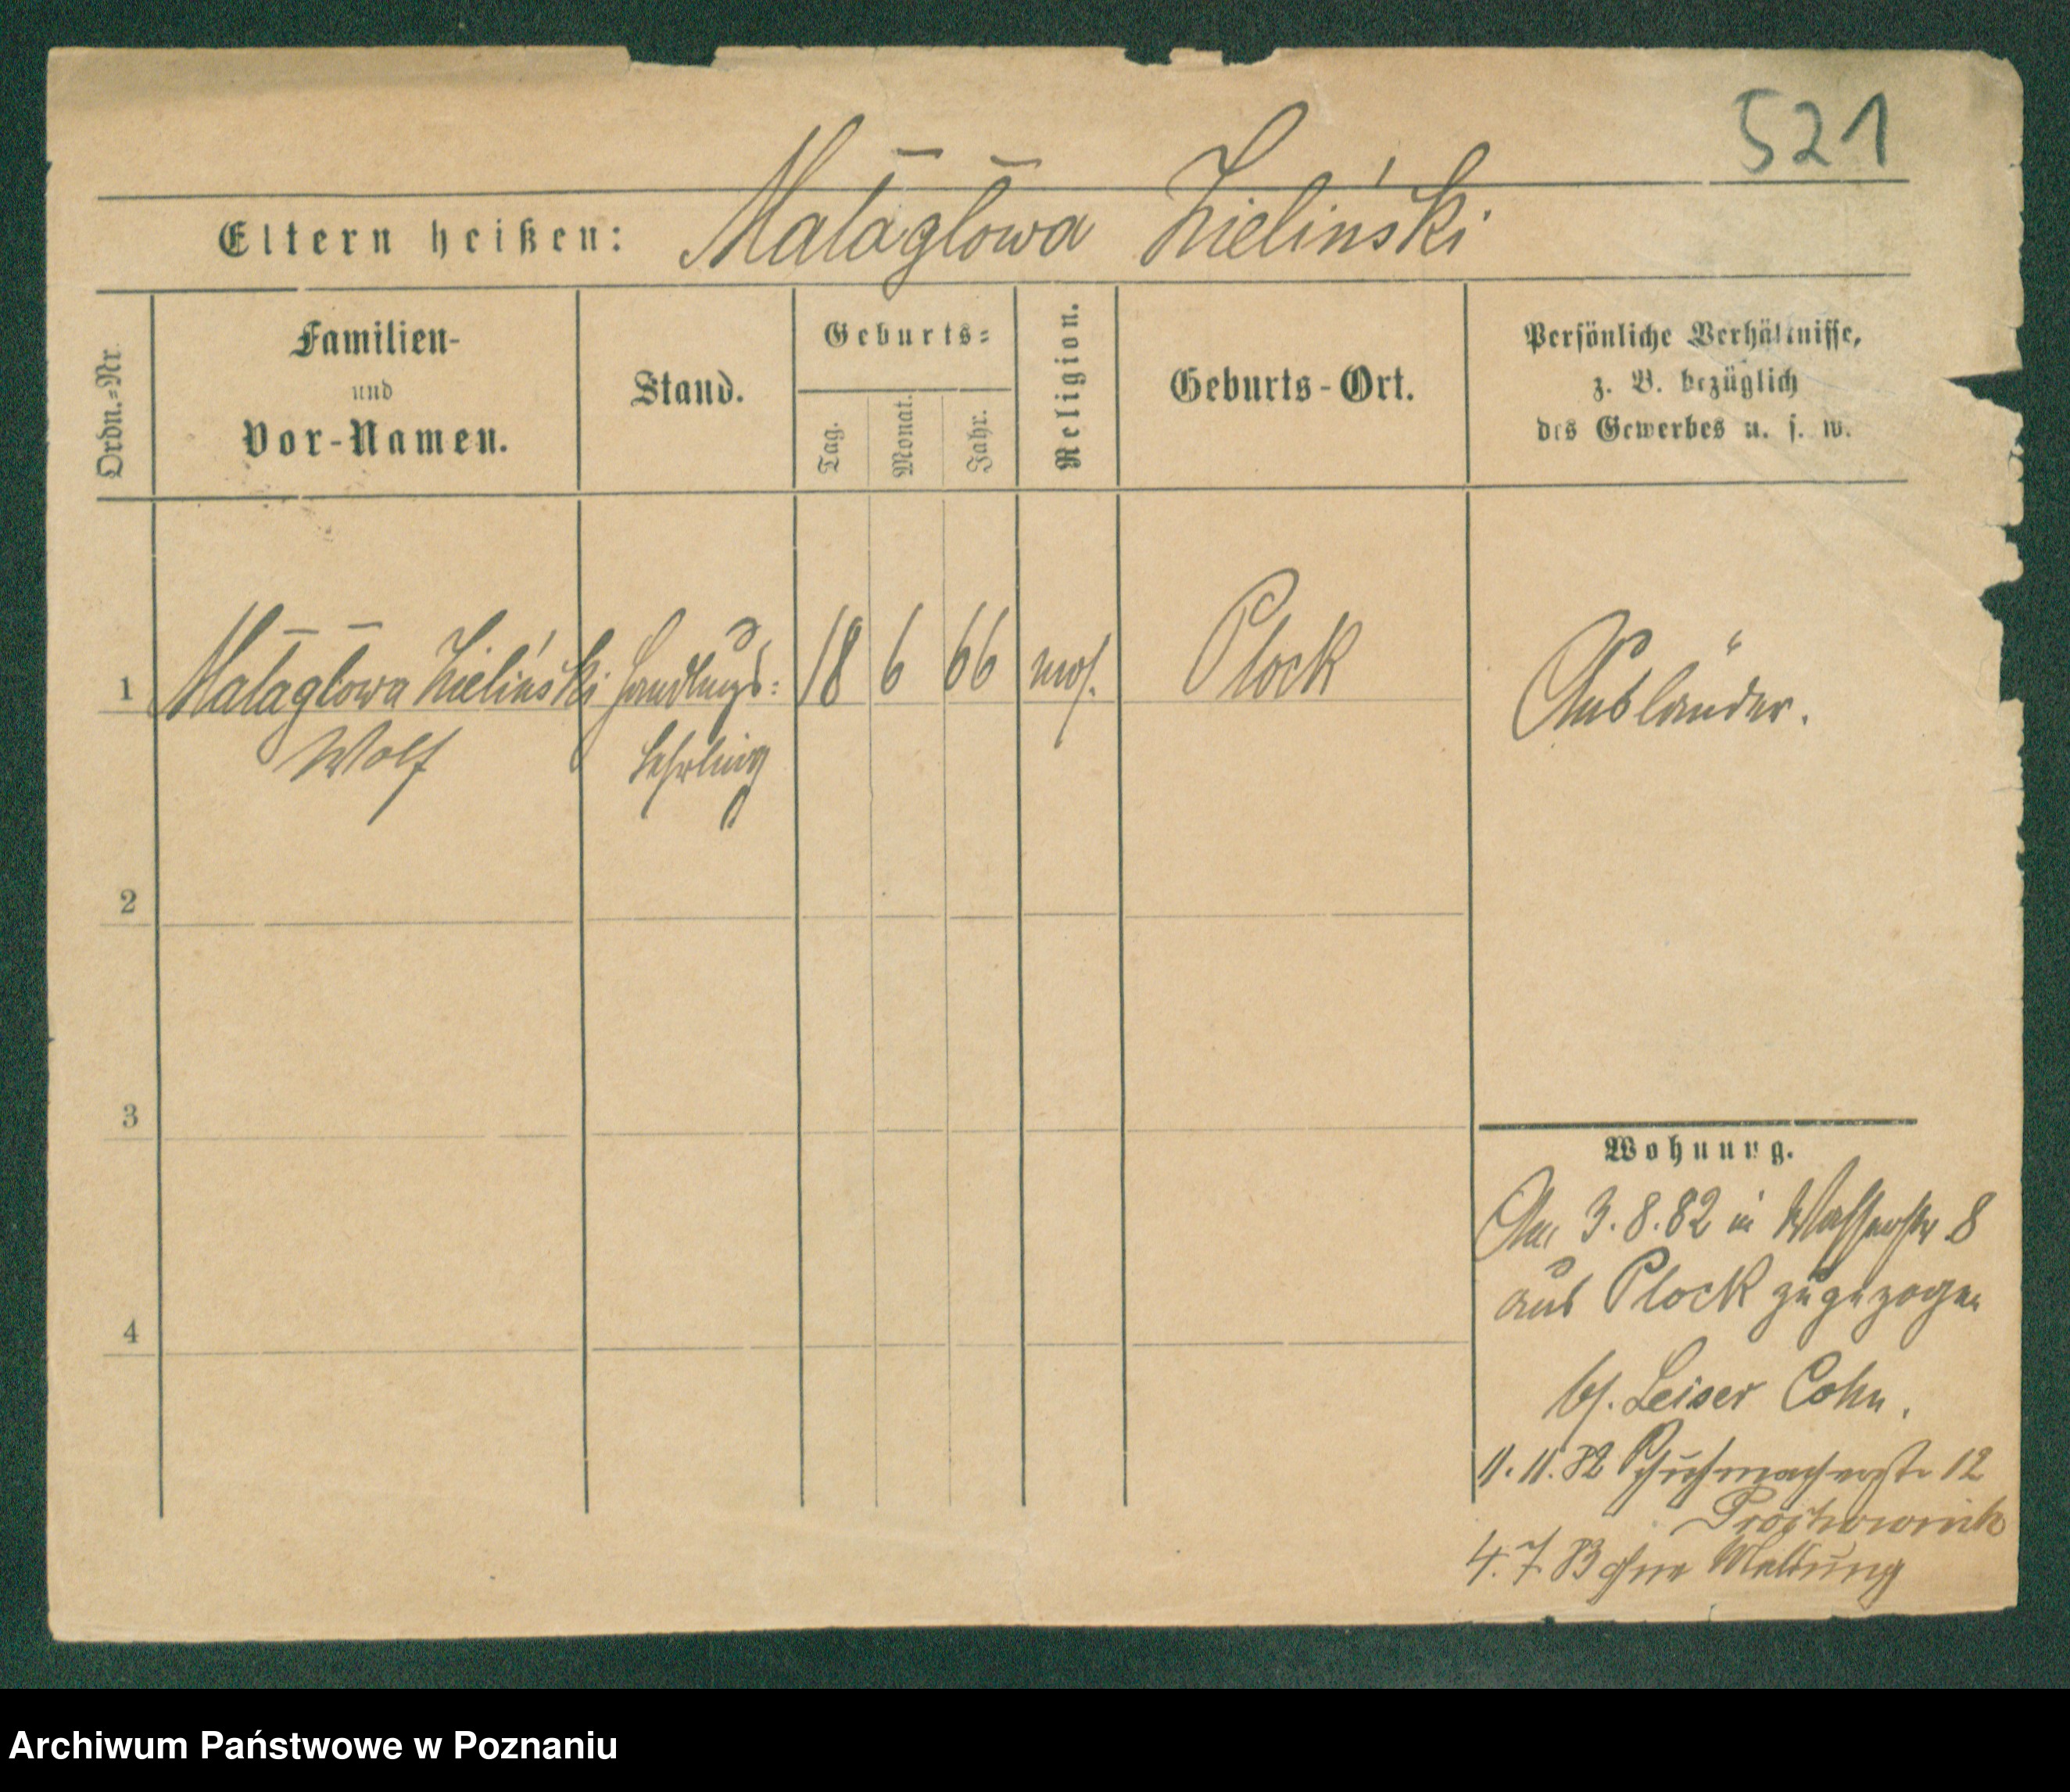 521
Eltern heißen: Małagłowa Zieliński
Ordn.=Nr.
Familien-
und
Vor-Namen.
Stand.
Geburts=
Tag.
Monat.
Jahr.
Religion.
Geburts-Ort.
Persönliche Verhältnisse,
z. B. bezüglich
des Gewerbes u. s. w.
1 Małagłowa Zieliński Handlungs= 18 6 66 mos. Plock Ausländer.
Wolf Lehrling
2
3
4
Wohnung.
Am 3.8.82 in Wasserstr 8
aus Plock zugezogen
bs. Leiser Cohn.
11.11.82 Schuhmacherstr 12
4.7 83 ohne Meldung
Archiwum Państwowe w Poznaniu